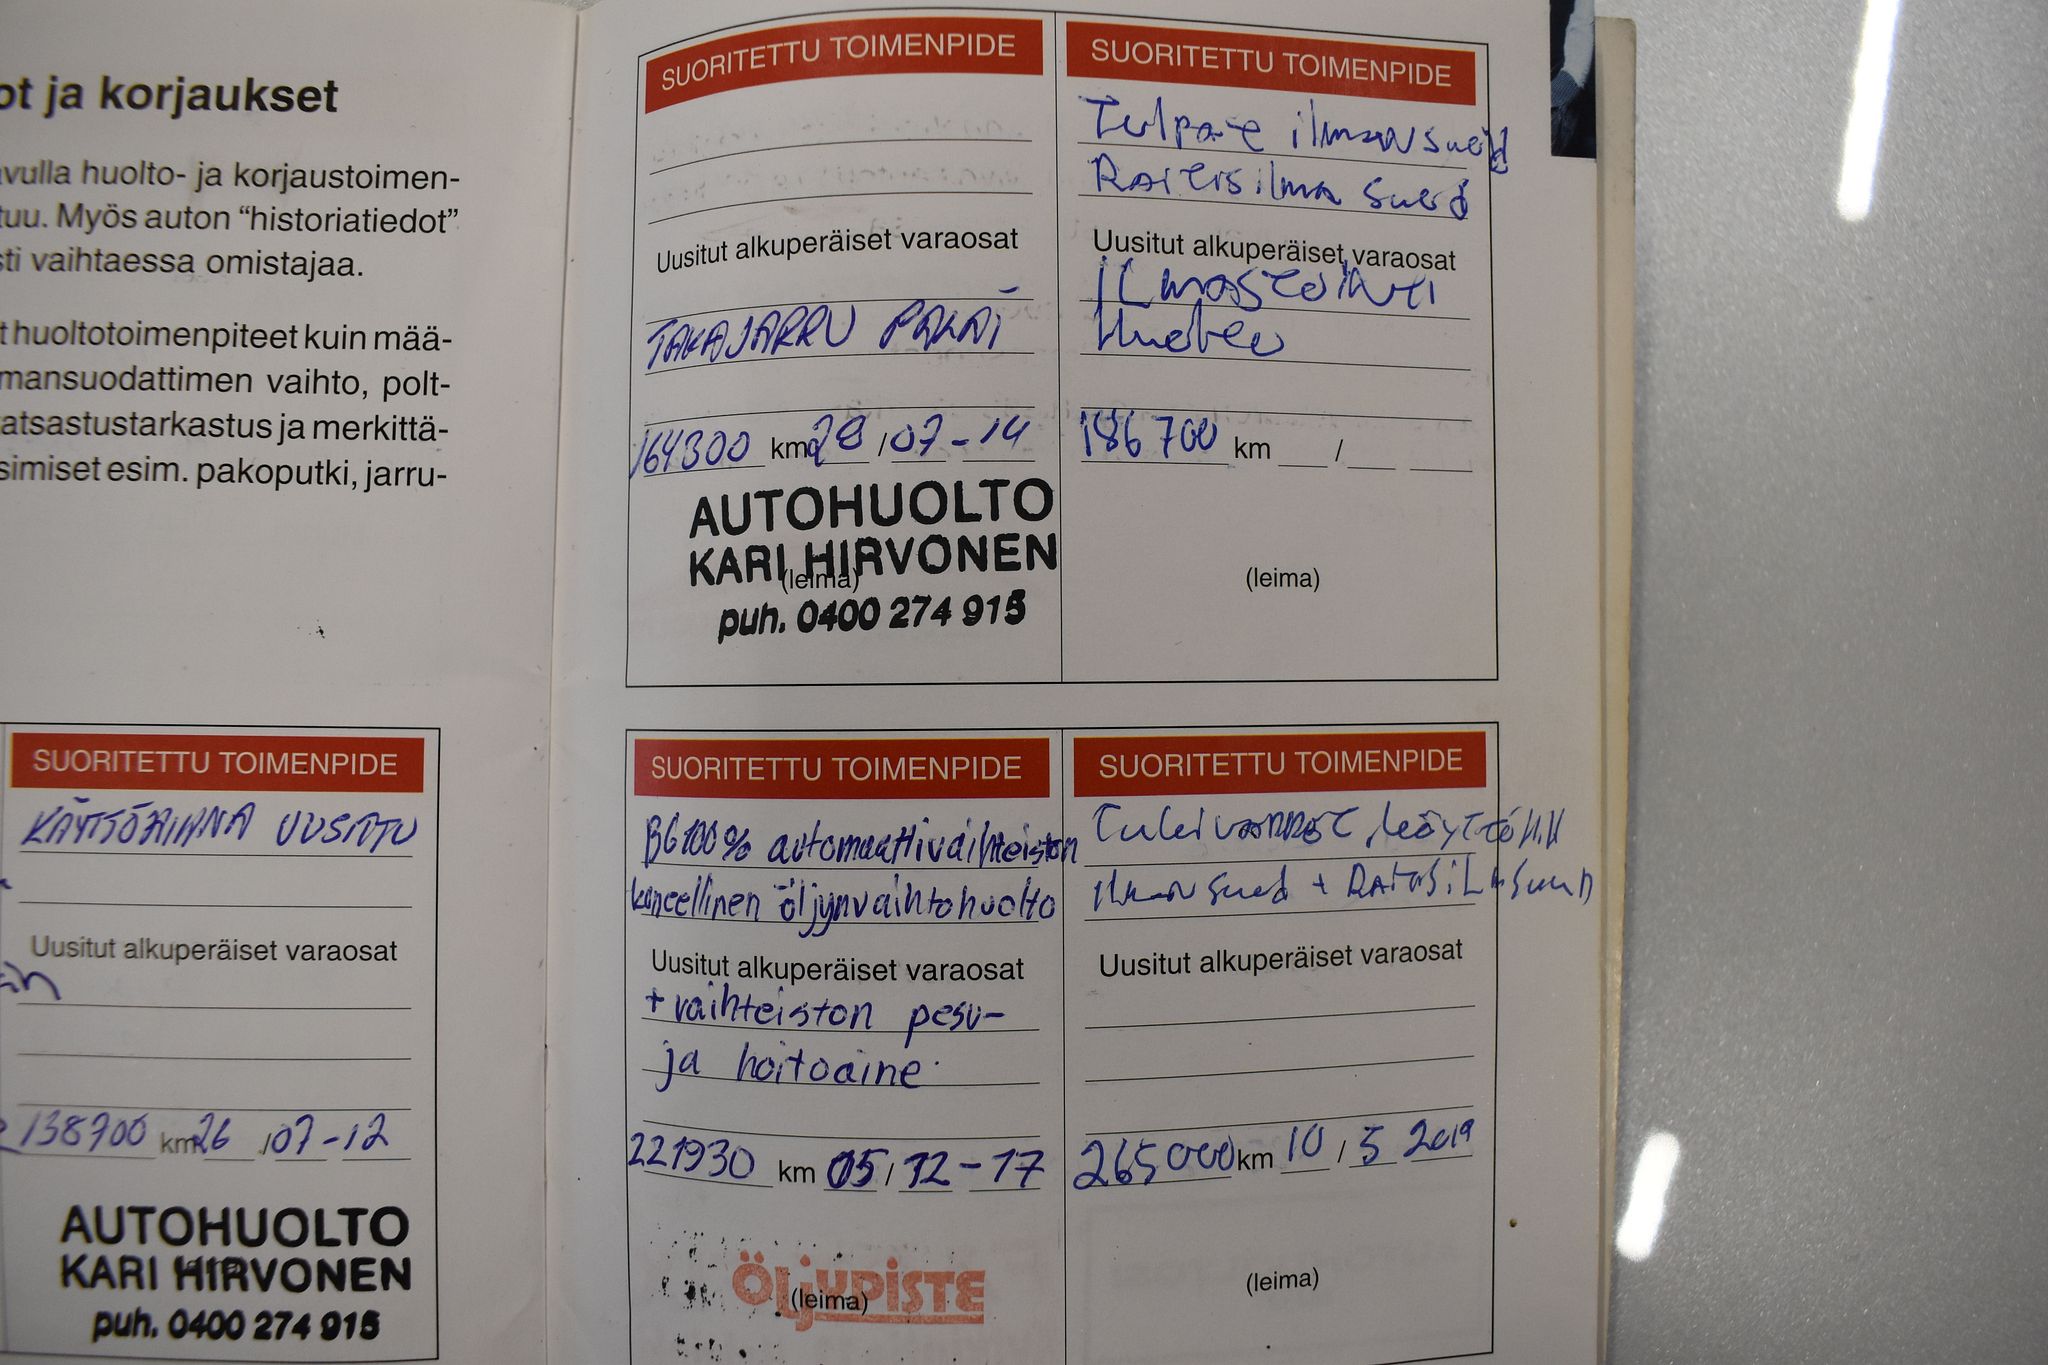 ot ja korjaukset
vulla huolto- ja korjaustoimen-
tuu. Myös auton “historiatiedot”
sti vaihtaessa omistajaa.
t huoltotoimenpiteet kuin mää-
mansuodattimen vaihto, polt-
atsastustarkastus ja merkittä-
simiset esim. pakoputki, jarru-
SUORITETTU TOIMENPIDE
KÄYTTÖHIHNA UUSITTU
Uusitut alkuperäiset varaosat
138700 km 26 /07-12
AUTOHUOLTO
KARI HIRVONEN
puh. 0400 274 915
SUORITETTU TOIMENPIDE
Uusitut alkuperäiset varaosat
TAKAJARRU PALAT
164300 km 28 /07-14
AUTOHUOLTO
KARI HIRVONEN
(leima)
puh. 0400 274 915
SUORITETTU TOIMENPIDE
ilmansuod
Raitisilma suod
Uusitut alkuperäiset varaosat
ILmastointi
Huolto
186 700 km /
(leima)
SUORITETTU TOIMENPIDE
BG 100% automaattivaihteiston
koneellinen öljynvaihtohuolto
Uusitut alkuperäiset varaosat
+ vaihteiston pesu-
ja hoitoaine
221930 km 05/12-17
ÖLJYPISTE
(leima)
SUORITETTU TOIMENPIDE
Uusitut alkuperäiset varaosat
265000 km 10 / 5 2019
(leima)